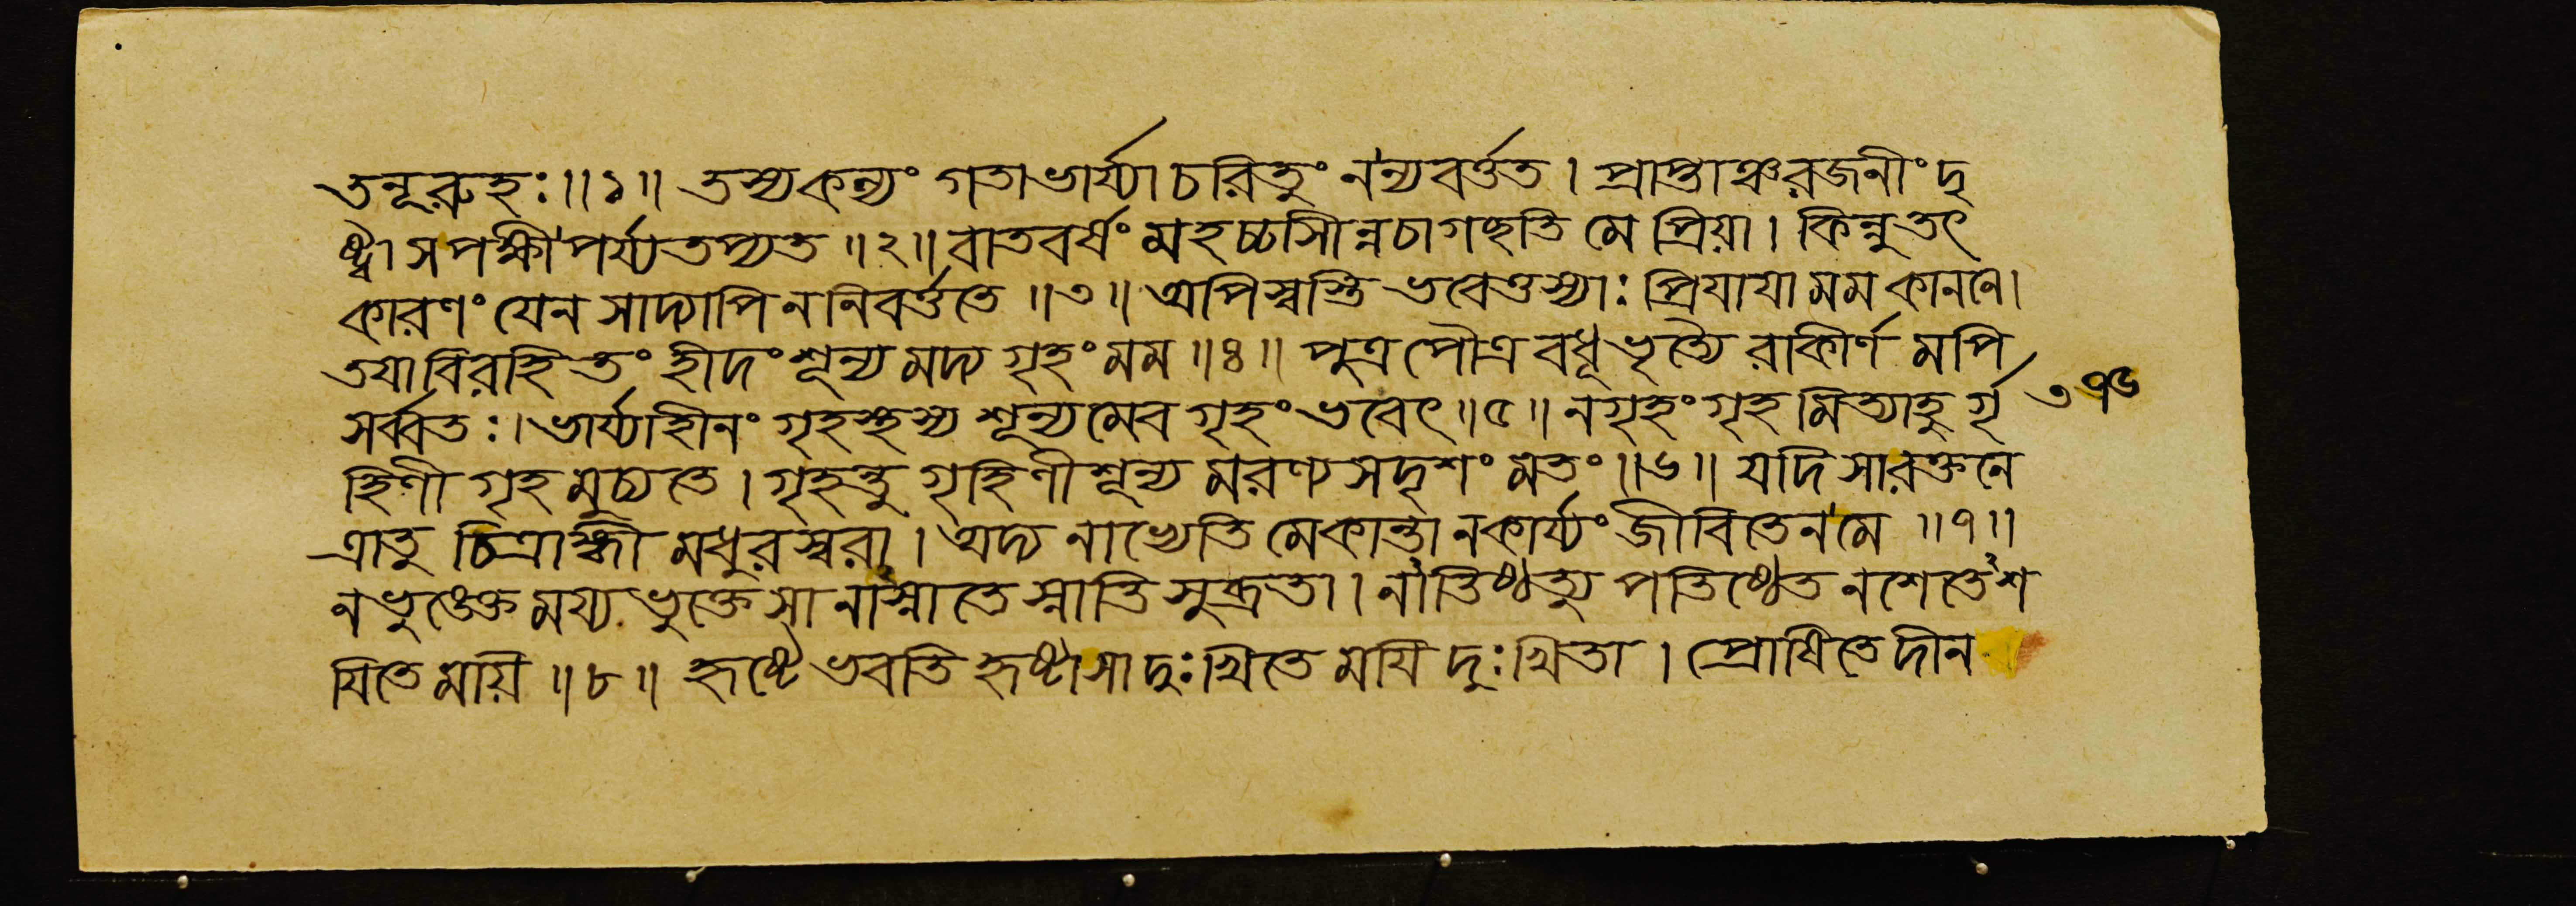 তনূরুহঃ॥১॥ তস্যকন্যং গতাভার্য্যা চরিতুং নন্যবর্ত্তত। প্রাপ্তাঞ্চরজনীং দৃ
ষ্ট্বা স পক্ষী পর্য্যতপ্যত ॥২॥ বাতবর্ষং মহচ্চাসীন্নচাগচ্ছতি মে প্রিয়া। কিন্নুতৎ
কারণং যেন সাদ্যাপি ননিবর্ত্ততে ॥৩॥ অপিস্বস্তি ভবেত্তস্যাঃ প্রিযাযা মম কাননে।
তযা বিরহিতং হীদং শূন্য মদ্য গৃহং মম ॥৪॥ পুত্র পৌত্র বধূ ভৃত্যৈ রাকীর্ণ মপি
সর্ব্বতঃ। ভার্য্যাহীনং গৃহস্থস্য শূন্যমেব গৃহং ভবেৎ ॥৫॥ নগৃহং গৃহ মিত্যাহু র্গৃ
হিণী গৃহ মুচ্যতে। গৃহন্তু গৃহিণীশূন্য মরণ্য সদৃশং মতং ॥৬॥ যদি সারক্তনে
ত্রাতু চিত্রাঙ্গী মধুরস্বরা। অদ্য নাখ্যেতি মেকান্তা নকার্য্যং জীবিতেন মে ॥৭॥
নভুঙ্ক্তে ময্য ভুক্তে সা নাস্নাতে স্নাতি সুব্রতা। নাতিষ্ঠত্যু পতিষ্ঠেত নশেতে শ
যিতে ময়ি ॥৮॥ হৃষ্টে ভবতি হৃষ্টাসা দুঃখিতে মযি দুঃখিতা। প্রোষিতে দীন